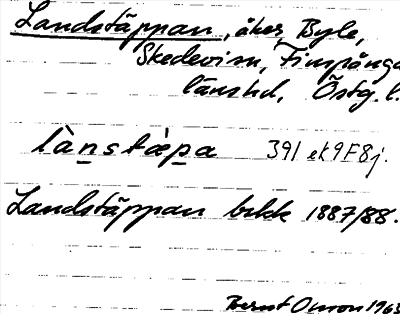 Landstäppan, åker, Byle,
Skedevi sn, Finspånga
länshd, Östg. l.
lànstæ̀pa 391 ek 9F8j.
Landstäppan bekk 1887/88.
Bernt Olsson 1963